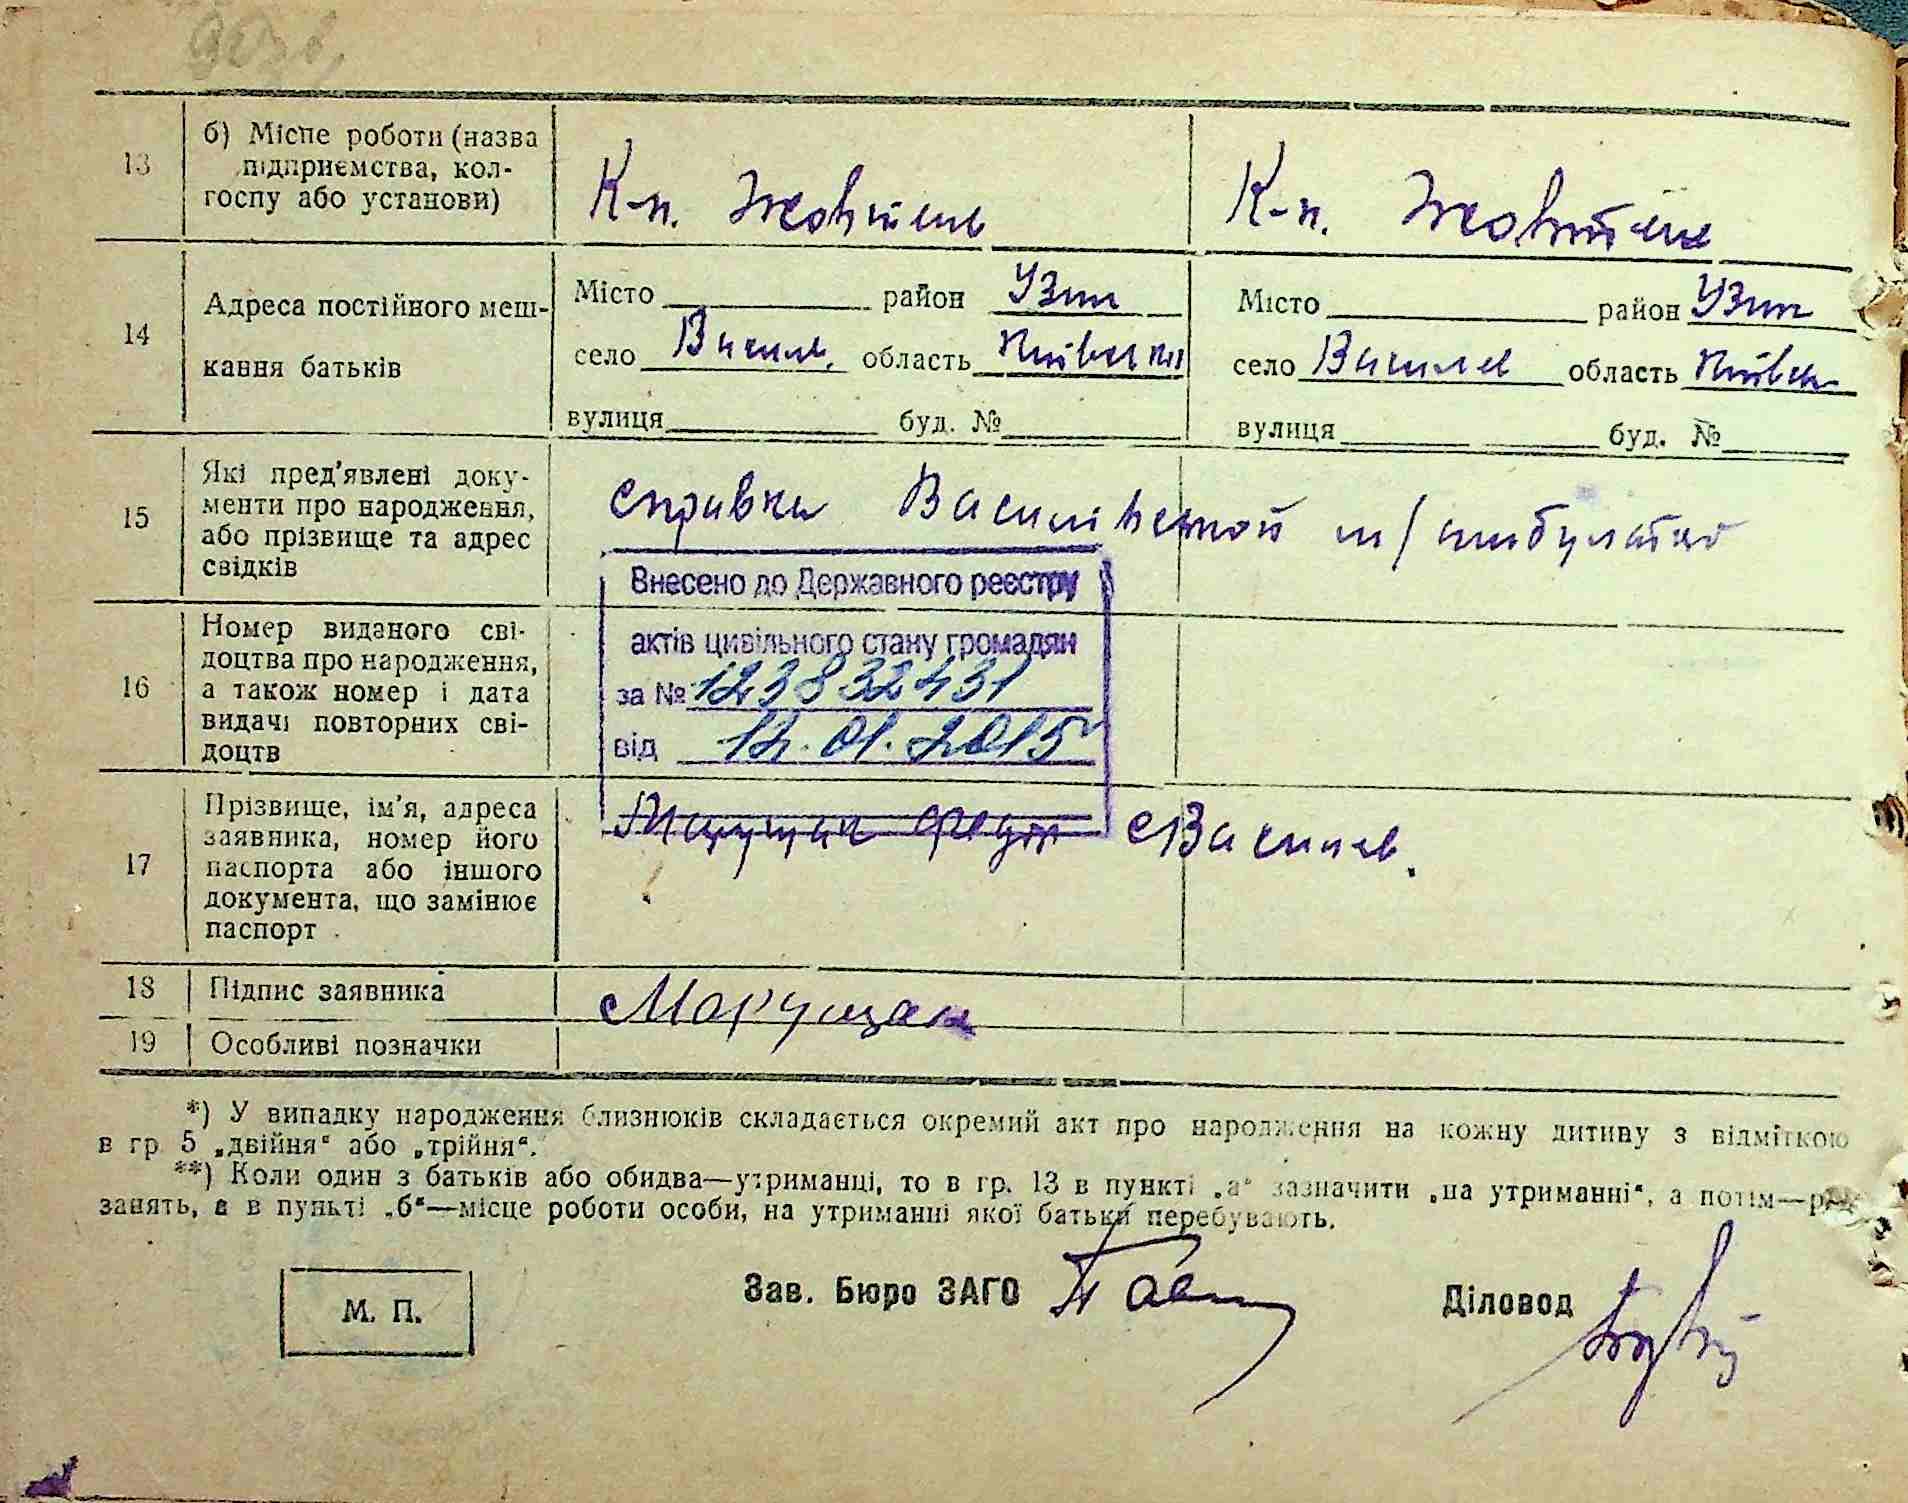 13
б) Місце роботи (назва
підприємства, кол-
госпу або установи)
К-п. Жовтень
К-п. Жовтень
14
Адреса постійного меш-
кання батьків
Місто район Узин
село Василів. область Київська
вулиця буд. №
Місто район Узин
село Василів область Київськ
вулиця буд. №
15
Які пред'явлені доку-
менти про народження,
або прізвище та адрес
свідків
справка Василівської м/амбулаторії
16
Номер виданого сві-
доцтва про народження,
а також номер і дата
видачі повторних сві-
доцтв
Внесено до Державного реєстру
актів цивільного стану громадян
за № 123832431
від 12.01.2015
17
Прізвище, ім'я, адреса
заявника, номер його
паспорта або іншого
документа, що замінює
паспорт
Марущак с Василів.
18 Підпис заявника
Марущак
19 Особливі позначки
*) У випадку народження близнюків складається окремий акт про народження на кожну дитину з відміткою
в гр 5 „двійня“ або „трійня“.
**) Коли один з батьків або обидва—утриманці, то в гр. 13 в пункті „а“ зазначити „на утриманні“, а потім—
занять, а в пункті „б“—місце роботи особи, на утриманні якої батьки перебувають.
М. П.
Зав. Бюро ЗАГС
Діловод